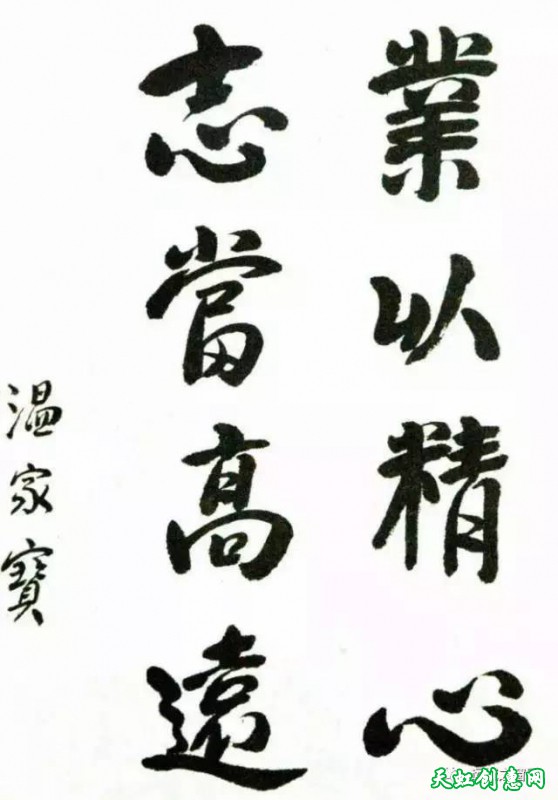 業以精心
志當高遠
温家寶
天虹创意网